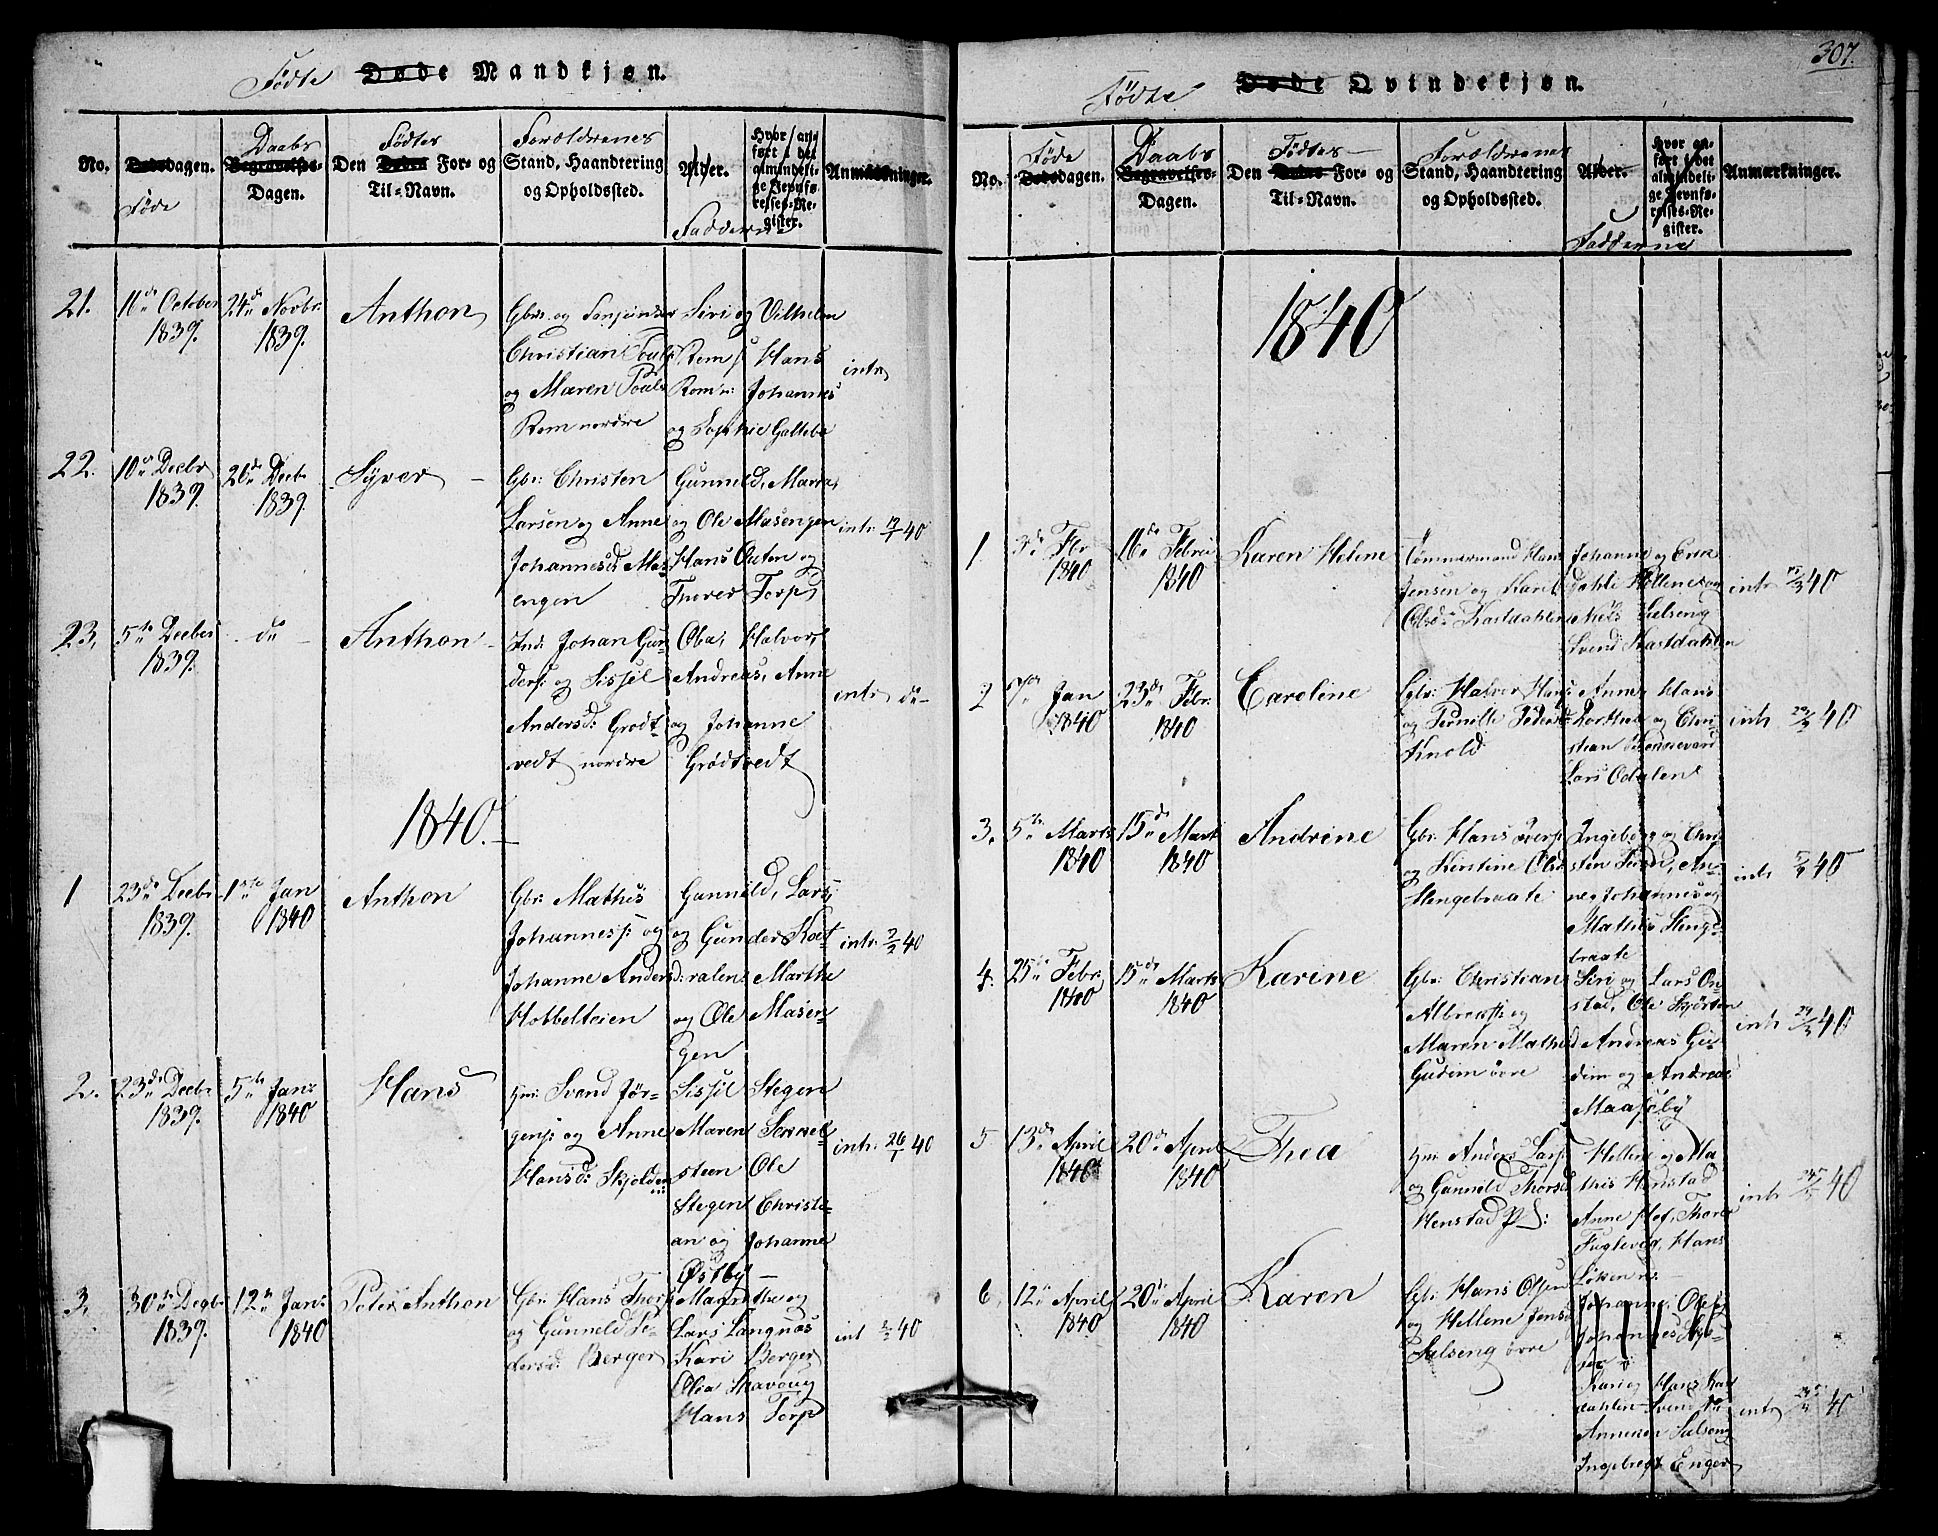 307.
Födte Døde Mandkjøn.
No.
Dødsdagen.
Föde
Daabs
Begravelses-
Dagen.
Födtes
Den Dødes For- og
Til-Navn.
Forældrenes
Stand, Haandtering
og Opholdssted.
Alder.
Fadderne
Hvor an-
ført i det
almindeli-
ge Jevnfø-
relses-Re-
gister.
Anmærkninger.
21.
11 October
1839.
24de Novbr.
1839.
Anthon
Gbr. og
Christian
og Maren
Rem nordre
Siri og Vilhelm
Rem Hans
Johannes
og Sophie
intr
22.
10de Decbr
1839.
26de Decbr
1839.
Syver
Gbr: Christen
Larsen og Anne
Johannesd: Mas-
engen
Gunneld, Maria,
og Ole Masengen
Hans Oulen og
Thorer Torp
intr. 40
23.
5te Decber
1839.
do
Anthon
Ind: Johan Gun-
ders: og Sissel
Andersd: Grödt-
vedt nordre
Halvor,
Andreas, Anne
og Johanne
Grödtvedt
intr do
1840.
1
23de Decbr
1839.
1ste Jan
1840
Anthon
Gbr: Mathis
Johanness: og
Johanne Andersd:
Hobbelteien
Gunnild, Lars,
og Gunder
Marthe
og Ole Masen-
gen
intr. 40
2.
23de Decbr
1839.
5te Jan:
1840
Hans
Hm: Svend Jør-
gens: og Anne
Hansd: Skjolden
Sissil Stegen
Maren
steen Ole
Stegen Christi-
an og Johanne
Østby
intr: 26/1 40
3.
30te Decbr
1839.
12te Jan:
1840
Peter Anthon
Gbr: Hans Thors:
og Gunneld Pe-
dersd: Berger
Marthe og
Lars Langnæs
Kari Berger
Olia
Hans Torp
int 40
Födte Døde Qvindekjøn.
No.
Föde
Dødsdagen.
Daabs
Begravelses-
Dagen.
Födtes
Den Dødes For- og
Til-Navn.
Forældrenes
Stand, Haandtering
og Opholdssted.
Alder.
Fadderne
Hvor an-
ført i det
almindeli-
ge Jevnfø-
relses-Re-
gister.
Anmærkninger.
1840
1.
3de Fbr
1840
16de Febru
1840
Karen Helene
Tømmermand Hans
Jensen og Kari
Olsd: Kastdahlen
Johanne og
Hellene og
Niels Sulseng
Svend Kastdahlen
intr 40
2
Jan
1840
23de Febr.
1840
Caroline
Gbr: Halvor Hans:
og Pernille Pedersd:
Knold
Anne, Hans
Dorthea og Chri-
stian
Lars Odalen
intr. 40
3.
5te Marts
1840
15de Marts
1840
Andrine
Gbr: Hans
og Kirstine Olsd:
Hengebraate
Ingeborg og Chri-
sten
Johannes og
Mathis Henge-
braate
intr 40
4.
25de Febr.
1840
15de Marts
1840
Karine
Gbr: Christian
Albrects: og
Maren Mathisd
Gudim övre
Siri og Lars On-
stad, Ole Skjörten
Andreas Gu-
dim og Andreas
Maaseby
intr 40
5
13de April
1840
20de April
1840
Thea
Hm: Anders Lars:
og Gunnild Thorsd
Henstad
Hellene og Ma-
this Henstad
Anne Hof, Thorer
Fuglevig, Hans
Löken
intr 40
6.
12te April
1840
20de April
1840
Karen
Gbr: Hans Olsen
og Hellene Jensd
Sulseng övre
Johanne, Ole og
Johannes
Kari og Hans Kast-
dahlen Svend do
Anneken Sulseng
Ingebregt Enger
intr 40